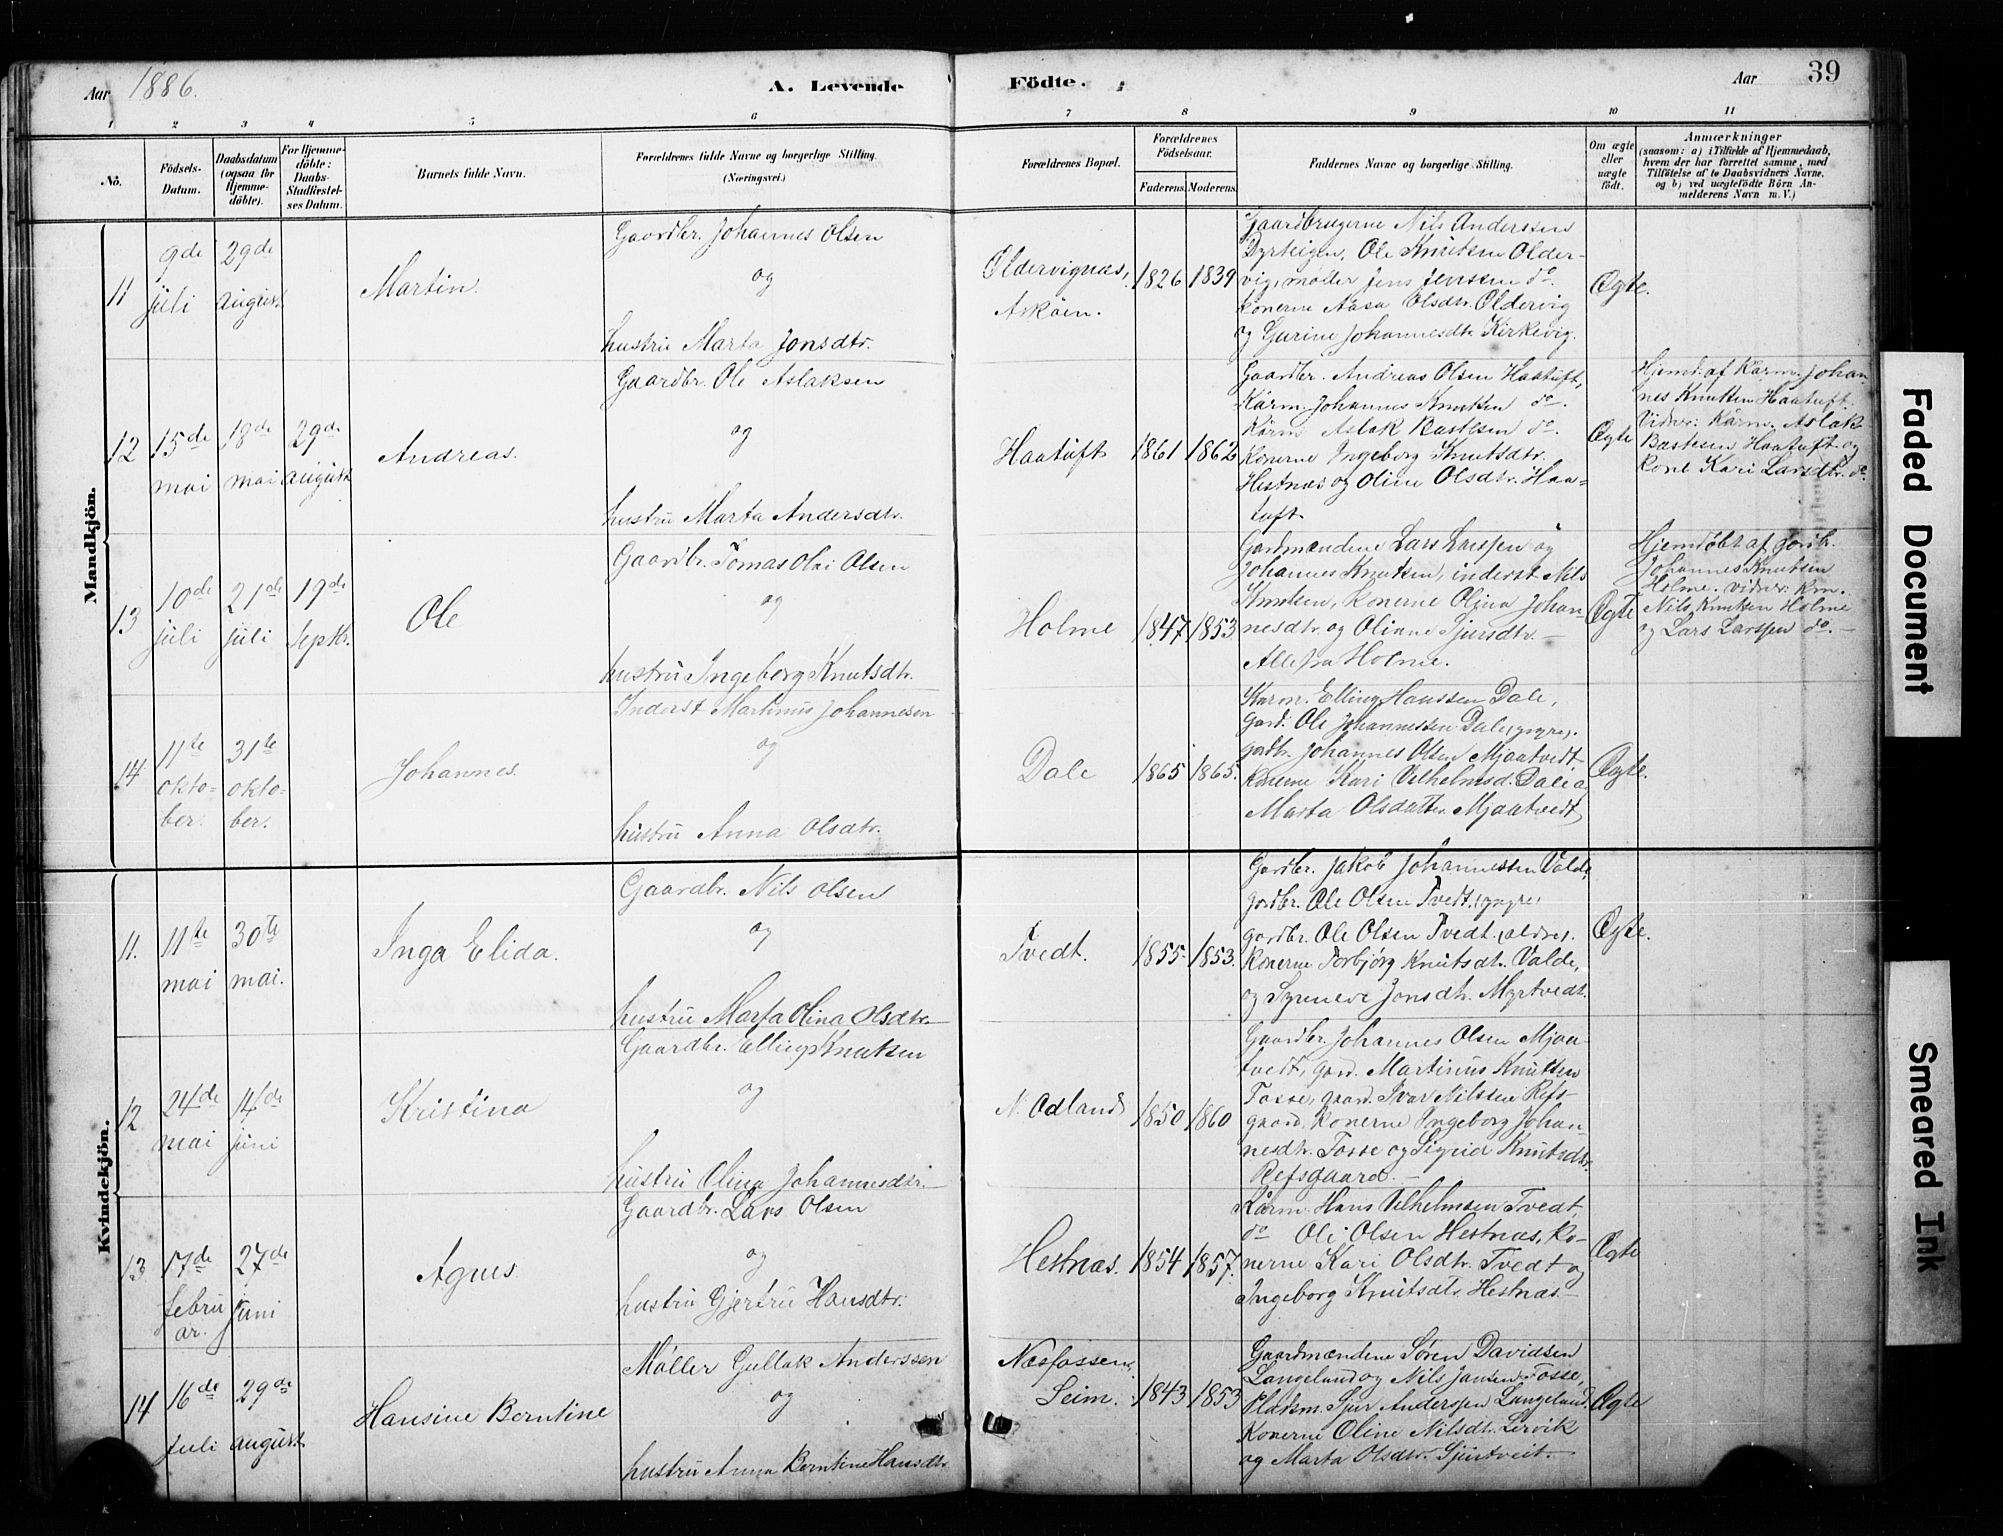 Aar 1886.
A. Levende
Födte.
Aar
39
1 2 3 4 5 6 7 8 9 10 11
No.
Födsels-
Datum.
Daabsdatum
(ogsaa for
Hjemme-
döbte).
For Hjemme-
döbte:
Daabs-
Stadfæstel-
ses Datum.
Barnets fulde Navn.
Forældrenes fulde Navne og borgerlige Stilling.
(Næringsvei.)
Forældrenes Bopæl.
Forældrenes
Födselsaar.
Faderens. Moderens.
Faddernes Navne og borgerlige Stilling.
Om ægte
eller
uægte
født.
Anmærkninger
(saasom: a) i Tilfælde af Hjemmedaab,
hvem der har forrettet samme, med
Tilföielse af to Daabsvidners Navne,
og b) ved uægtefödte Börn An-
melderens Navn m. V.)
Mandkjön.
11
9de
juli
29de
august
Martin.
Gaardbr. Johannes Olsen
og
hustru Marta Jonsdtr.
Oldervignæs,
Askøen.
1826
1839
Gaardbrugerne Nils Anderssen
Dyrteigen, Ole Knutsen Older-
vig, møller Jens Jenssen do.
konerne Aasa Olsdtr. Oldervig
og Gurine Johannesdtr. Kirkevig.
Ægte.
12
15de
mai
18de
mai
29de
august
Andreas.
Gaardbr. Ole Aslaksen
og
hustru Marta Andersdtr.
Haatuft
1861
1862
Gaardbr. Andreas Olsen Haatuft,
Kårm. Johannes Knutsen do.
Kårm. Aslak Bastesen do.
Konerne Ingeborg Knutsdtr.
Hestnæs og Oline Olsdtr. Haa-
tuft.
Ægte
Hjemd. af Kårm. Johan-
nes Knutsen Haatuft.
Vidner: Kårm. Aslak
Bastesen Haatuft og
kone Kari Larsdtr. do.
13
10de
juli
21de
juli
19de
Septbr.
Ole
Gaardbr. Tomas Olai Olsen
og
hustru Ingeborg Knutsdtr.
Holme
1847
1853
Gardmændene Lars Larssen og
Johannes Knutsen, inderst Nils
Knutsen, konerne Olina Johan-
nesdtr. og Olianne Sjursdtr. –
Alle fra Holme.
Ægte
Hjemdøbt af gardbr.
Johannes Knutsen
Holme. vidner:
Nils Knutsen Holme
og Lars Larssen do. –
14
11te
okto-
ber.
31te
okto-
ber.
Johannes.
Inderst Martinus Johannesen
og
hustru Anna Olsdtr.
Dale
1865
1865.
Karm. Elling Hanssen Dale,
gard. Ole Johannessen Dale (yngre).
gardbr. Johannes Olsen Mjaatvedt
konerne Kari Vilhelmsd. Dale o
Marta Olsdatter Mjaatvedt
Ægte.
Kvindekjön.
11.
11te
mai
30te
mai.
Inga Elida.
Gaardbr. Nils Olsen
og
hustru Marta Olina Olsdtr.
Tvedt.
1855
1853.
Gardbr. Jakob Johannessen Valde,
gardbr. Ole Olsen Tvedt, (yngre)
gardbr. Ole Olsen Tvedt. (ældre).
Konerne Torbjørg Knutsdtr. Valde,
og Syneve Jonsdtr. Myrtvedt.
Ægte.
12
24de
mai
14de
juni
Kristina
Gaardbr. Elling Knutsen
og
hustru Olina Johannesdtr.
N. Ødland
1850
1860
Gaardbr. Johannes Olsen Mjaa-
tvedt, gard. Martinus Knutsen
Fosse, gaard. Ivar Nilssen Refs-
gaard, konerne Ingeborg Johan-
nesdtr. Fosse og Sigrid Knutsdtr.
Refsgaard. –
13
17de
febru
ar.
27de
juni
Agnes.
Gaardbr. Lars Olsen
og
hustru Gjertru Hansdtr.
Hestnæs.
1854
1857.
Kårm. Hans Vilhelmsen Tvedt,
do Ole Olsen Hestnæs, ko-
nerne Kari Olsdtr. Tvedt og
Ingeborg Knutsdtr. Hestnæs. –
Ægte
14
16de
juli
29de
august
Hansine Berntine
Møller Gullak Anderssen
og
hustru Anna Berntine Hansdtr.
Næsfossen,
Seim.
1843
1853
Gaardmændene Søren Davidsen
Langeland og Nils Jansen Fosse,
Pladsm. Sjur Anderssen Langeland.
Konerne Oline Nilsdtr. Lervik
og Marta Olsdtr. Sjurtveit. –
Ægte
Faded Document
Smeared Ink